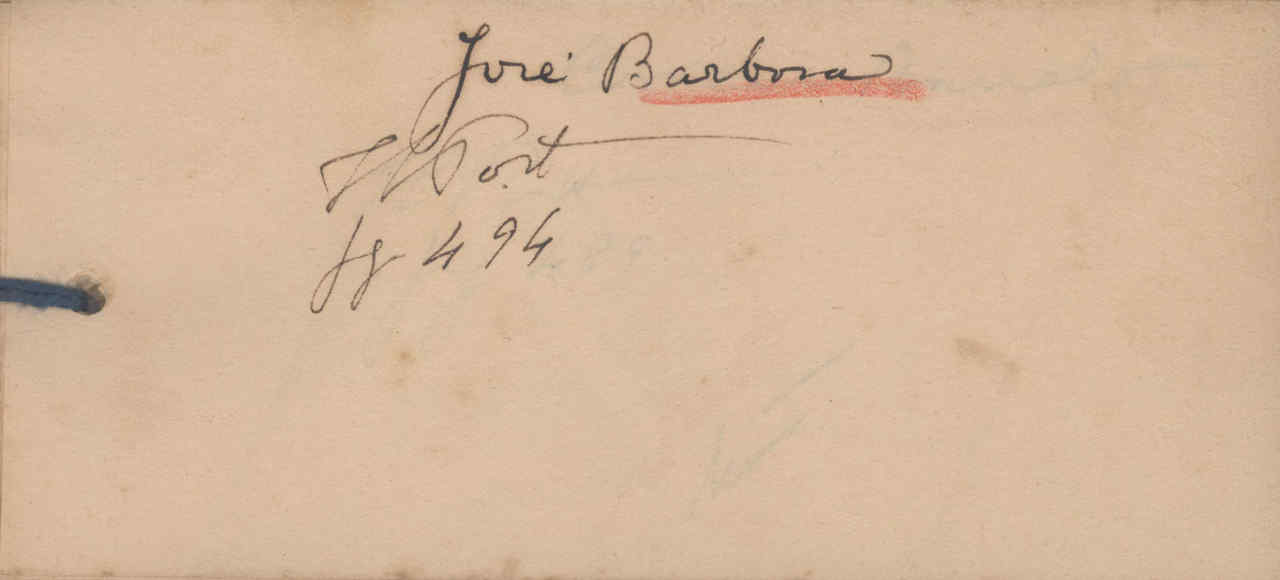 José Barbosa
Port
fg 494